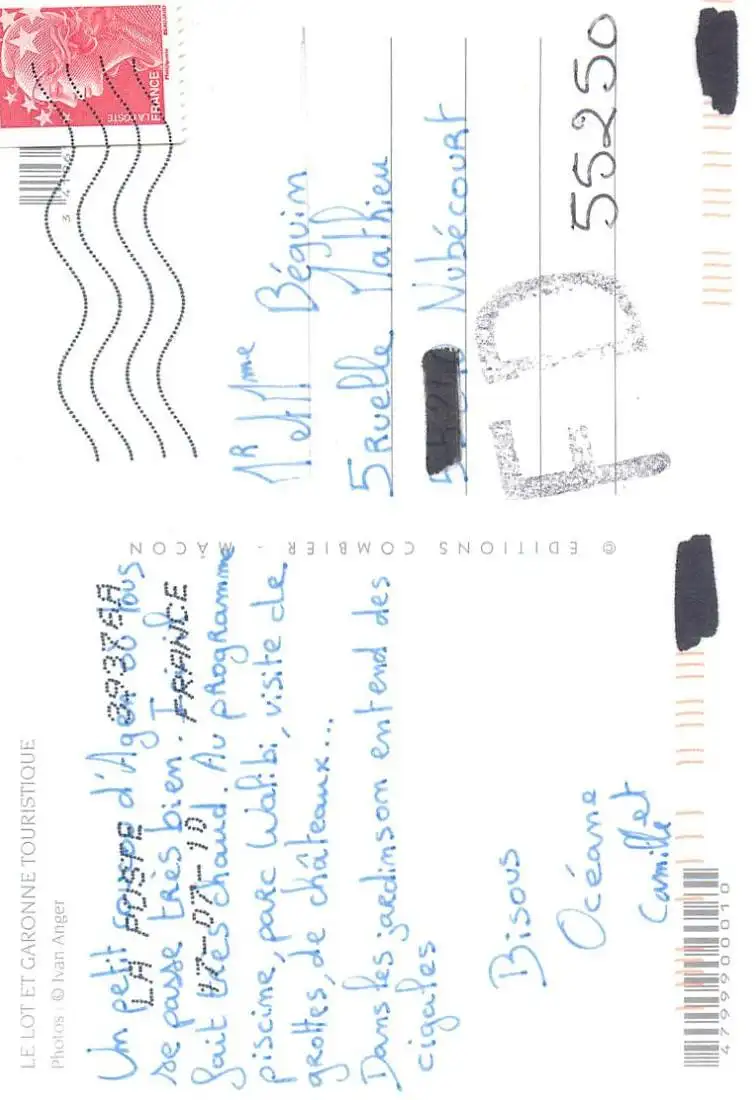 LE LOT ET GARONNE TOURISTIQUE
Photos : © Ivan Anger
Un petit d'Agen où tous
se passe très bien. Il
fait très chaud. Au programme
piscine, parc Walibi, visite de
grottes, de châteaux...
Dans les jardins om entend des
cigales
Bisous
Océane
et
Camille
LA POSTE 3937AA
-07-10 FRANCE
4799900010
© EDITIONS COMBIER - MÂCON
FRANCE
LA COSTE
Mr et Mme Béguin
5 Ruelle Mathieu
Nubécourt
FD
55250